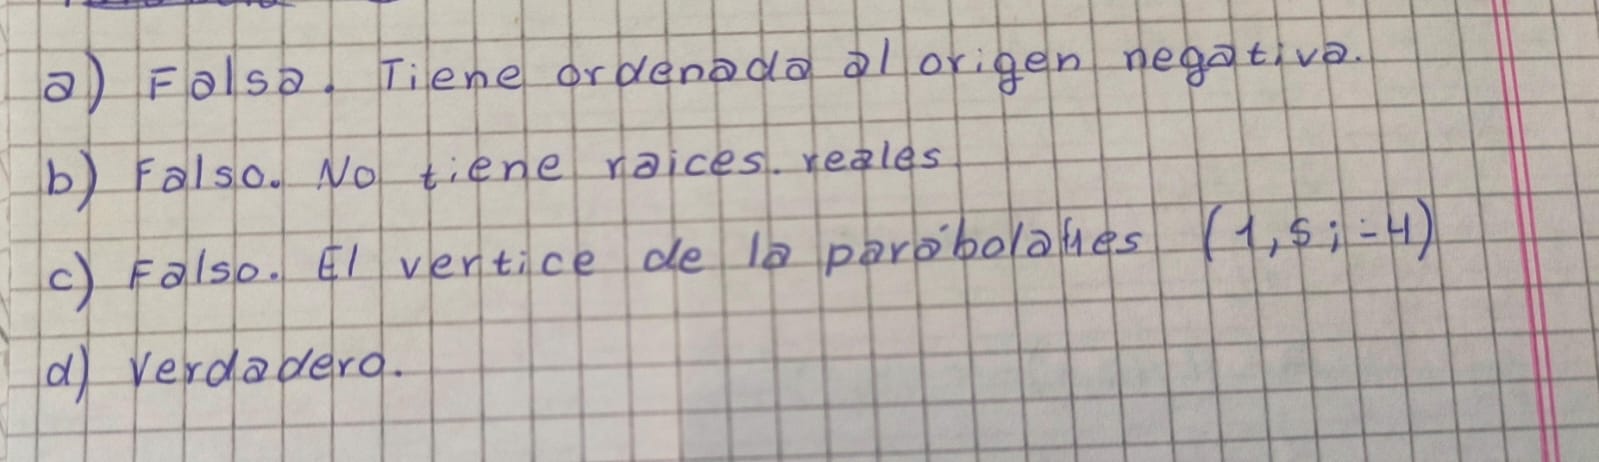 a) Falsa. Tiene ordenada al origen negativa.
b) Falso. No tiene raices. reales
c) Falso. El vertice de la parábola es (1,5;-4)
d) Verdadero.